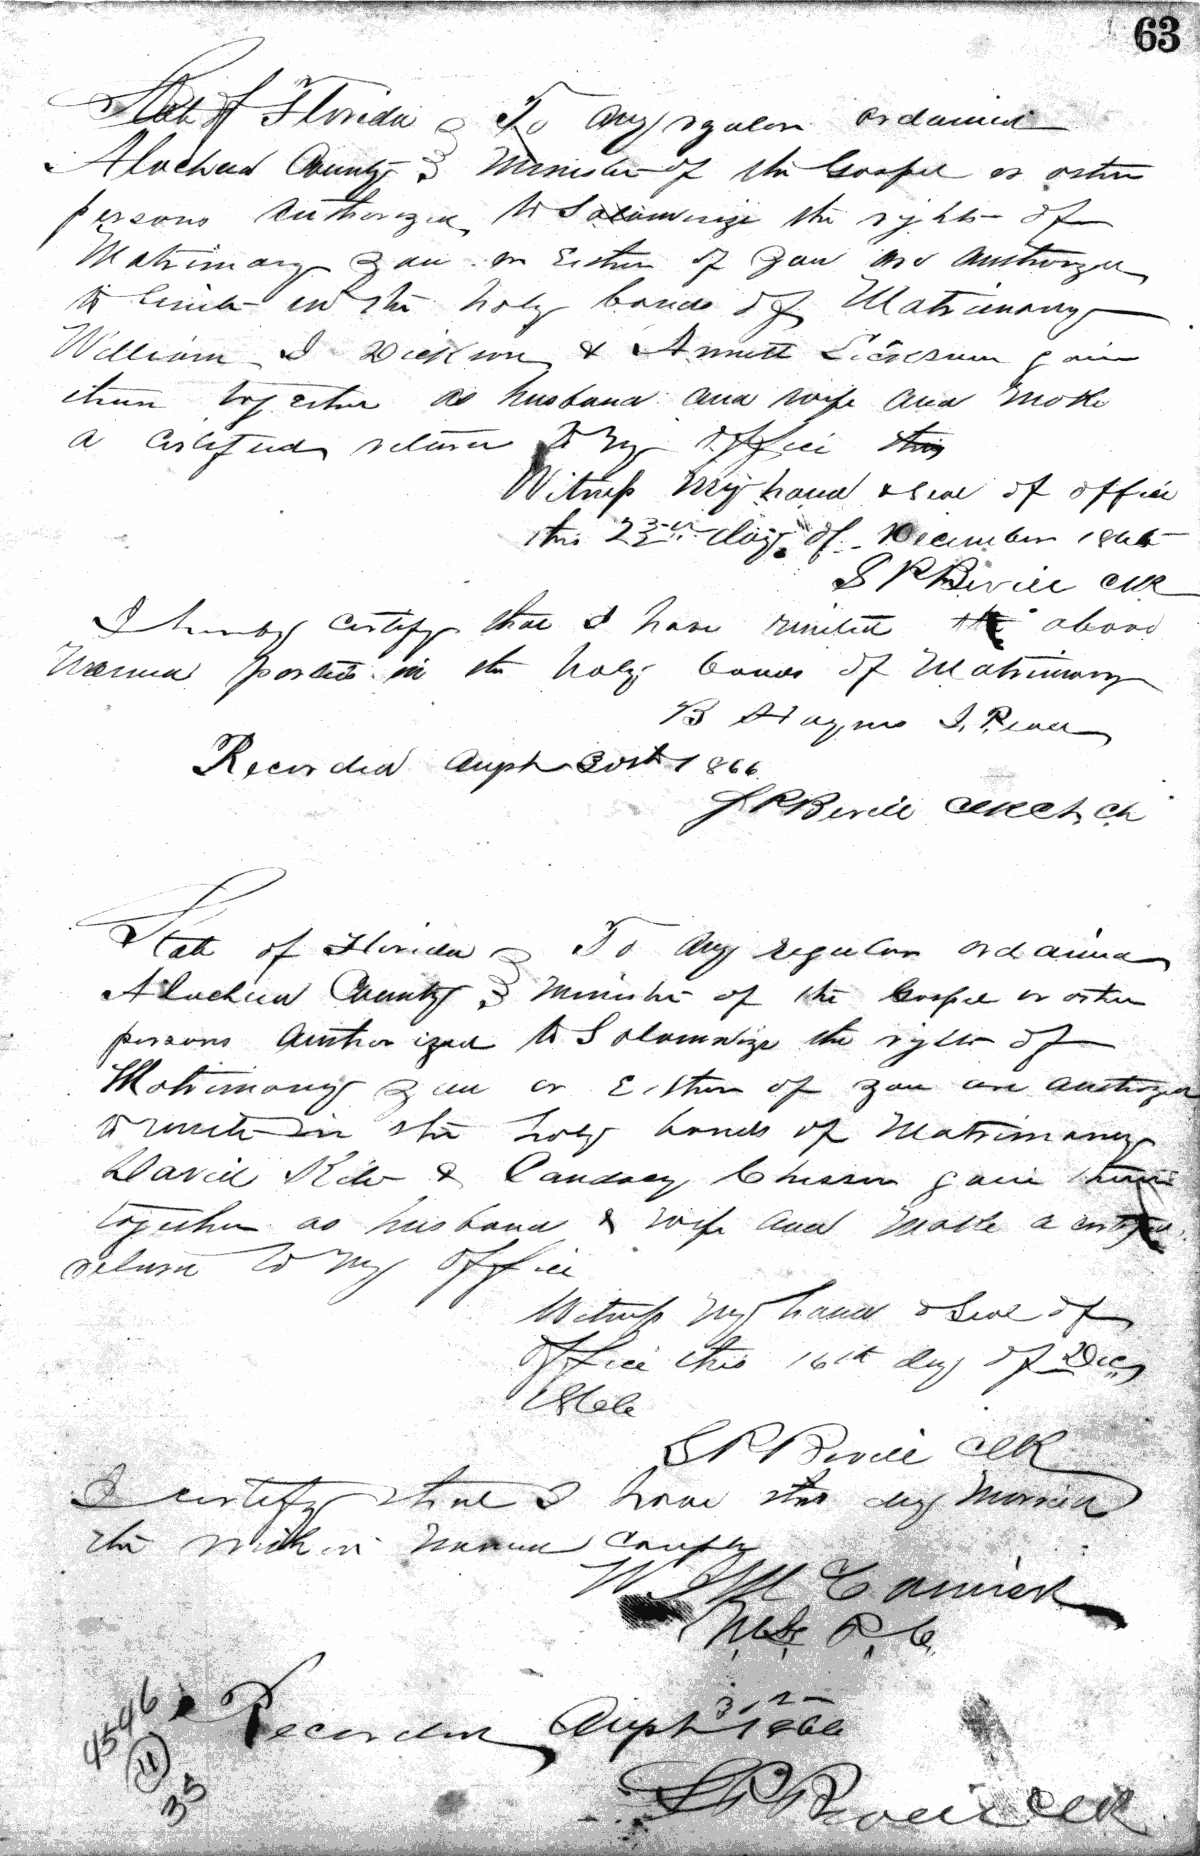 63
State of Florida } To any regular ordained
Alachua County } Minister of the Gospel or other
persons authorized to Solemnize the rights of
Matrimony you or Either of you are authorized
to Unite in the holy bonds of Matrimony
William J Dickson & Annett join
them together as husband and wife and make
a certified return to my office this
Witness my hand & Seal of office
this 23rd day of December 1865
S P Bevill Clk
I hereby certify that I have united the above
named parties in the holy bonds of Matrimony
B Haynes J. Peace
Recorded 30th 1866
S P Bevill Clk
State of Florida } To any regular ordained
Alachua County } Minister of the Gospel or other
persons authorized to Solomnize the rights of
Matrimony you or Either of you are authorized
to unite in the holy bonds of Matrimony
David & Candacy Chesson join them
together as husband & wife and make a certified
return to my office
Witness my hand & Seal of
office this 16th day of Dec,
1866
S P Bevill Clk
I certify that I have this day Married
the within named couple
W. McCormick
Recorded 31st 1866
S P Bevill Clk
4546
11
35